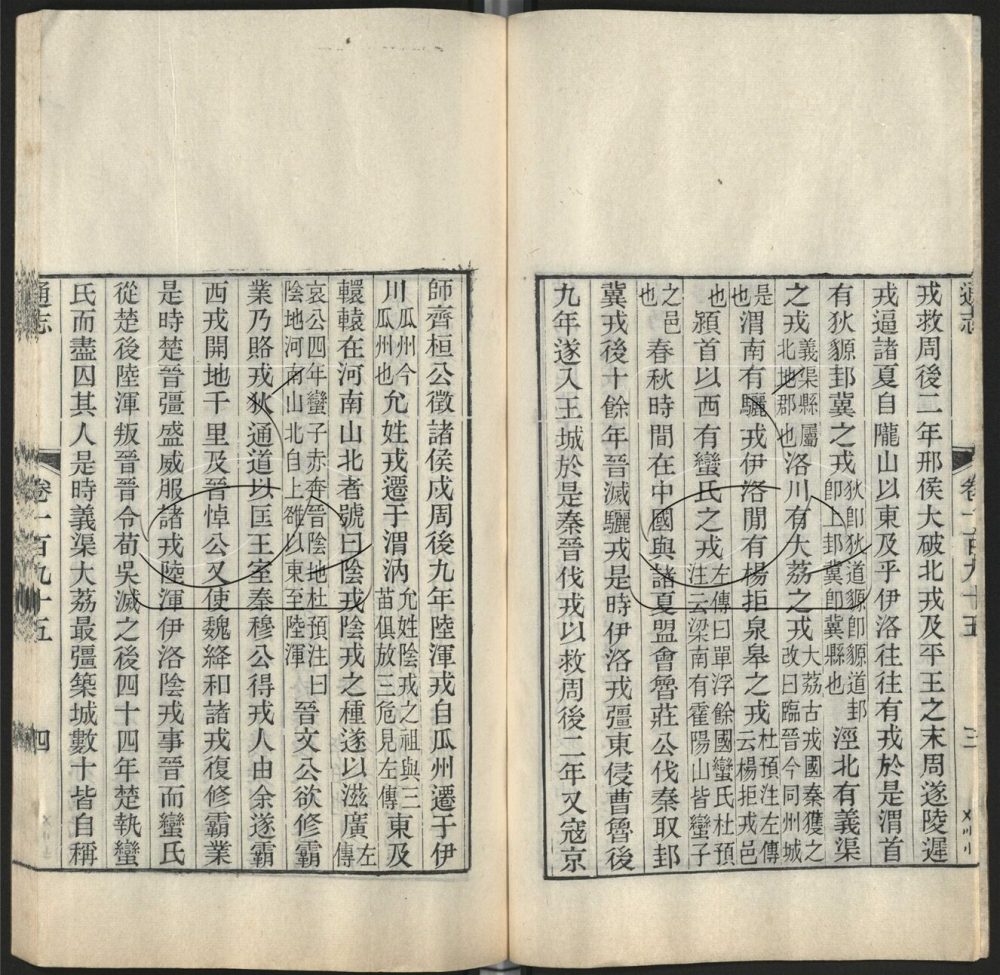 戎救周後二年邢侯大破北戎及平王之末周遂陵遲
戎逼諸夏自隴山以東及乎伊洛往往有戎於是渭首
有狄豲邽冀之戎狄卽狄道豲卽豲道邽卽上邽冀卽冀縣也涇北有義渠
之戎義渠縣屬北地郡也洛川有大荔之戎大荔古戎國秦獲之改曰臨晉今同州城
是也渭南有驪戎伊洛閒有楊拒泉皋之戎杜預注左傳云楊拒戎邑
也潁首以西有蠻氏之戎左傳曰單浮餘國蠻氏杜預注云梁南有霍陽山皆蠻子
之邑也春秋時間在中國與諸夏盟會魯莊公伐秦取邽
冀戎後十餘年晉滅驪戎是時伊洛戎彊東侵曹魯後
九年遂入王城於是秦晉伐戎以救周後二年又寇京
通志
卷一百九十五
三
師齊桓公徵諸侯戍周後九年陸渾戎自瓜州遷于伊
川瓜州今瓜州也允姓戎遷于渭汭允姓陰戎之祖與三苗俱放三危見左傳東及
轘轅在河南山北者號曰陰戎陰戎之種遂以滋廣左傳
哀公四年蠻子赤奔晉陰地杜預注曰陰地河南山北自上雒以東至陸渾晉文公欲修霸
業乃賂戎狄通道以匡王室秦穆公得戎人由余遂霸
西戎開地千里及晉悼公又使魏絳和諸戎復修霸業
是時楚晉彊盛威服諸戎陸渾伊洛陰戎事晉而蠻氏
從楚後陸渾叛晉晉令荀吳滅之後四十四年楚執蠻
氏而盡囚其人是時義渠大荔最彊築城數十皆自稱
通志
卷一百九十五
四